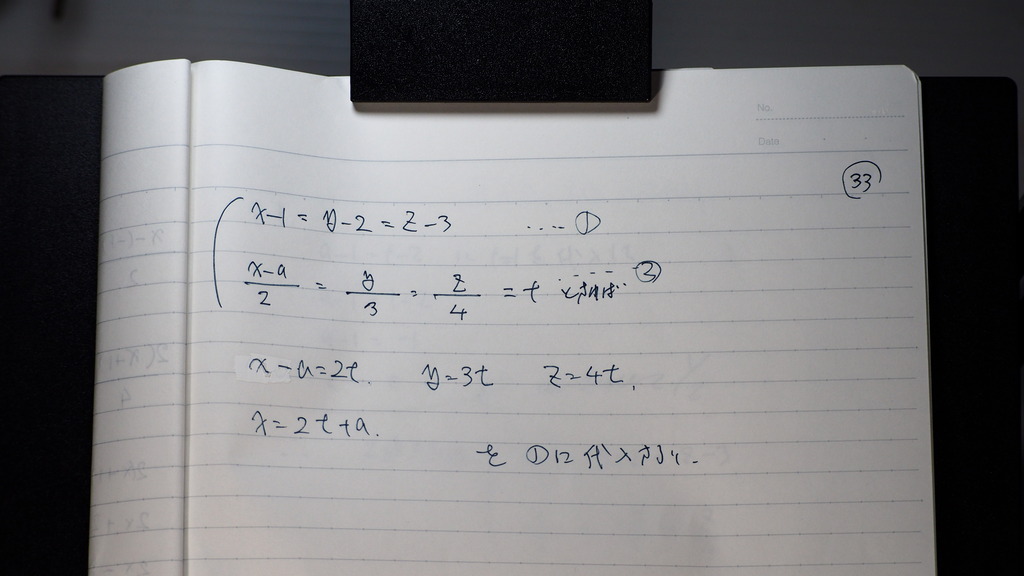 No.
Date
33
x-1 = y-2 = z-3 ..... ①
x-a/2 = y/3 = z/4 = t とおけば ③
x-a=2t. y=3t z=4t,
x=2t+a.
を ①に代入すれば.